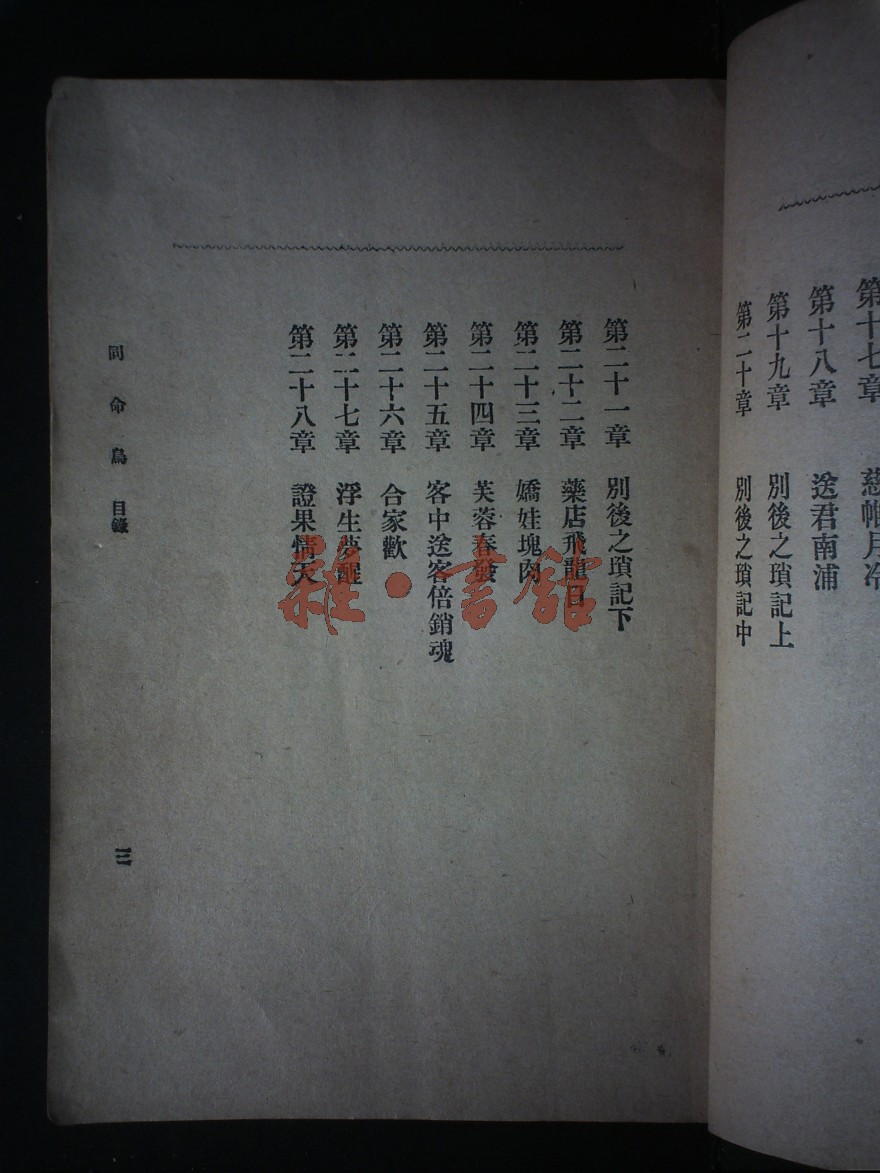 第十七章
第十八章 送君南浦
第十九章 別後之瑣記上
第二十章 別後之瑣記中
第二十一章 別後之瑣記下
第二十二章 藥店飛龍日
第二十三章 嬌娃塊肉
第二十四章 芙蓉春發
第二十五章 客中送客倍銷魂
第二十六章 合家歡
第二十七章 浮生夢醒
第二十八章 證果情天
同命鳥 目錄
三
雜·書館